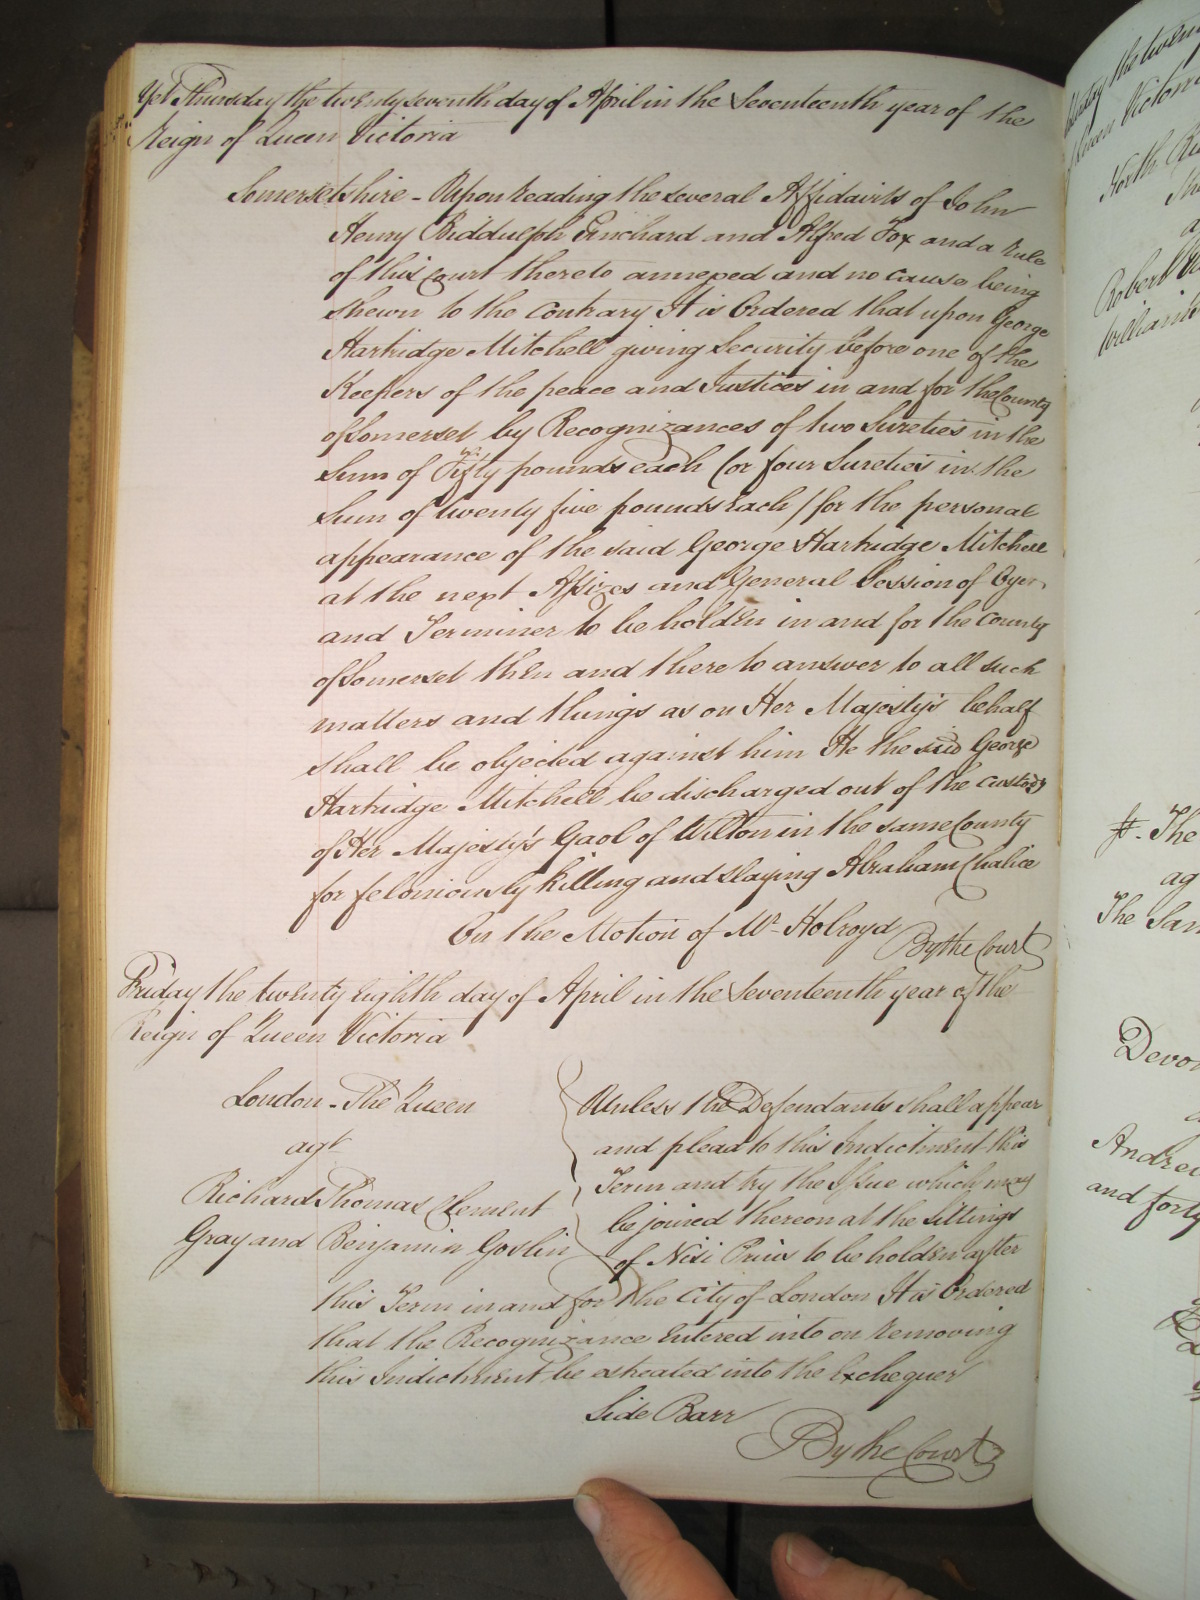 Yet Thursday the twenty seventh day of April in the Seventeenth year of the
Reign of Queen Victoria
Somersetshire - Upon reading the several Affidavits of John
Henry Biddulph Pinchard and Alfred Fox and a rule
of this Court thereto annexed and no cause being
shewn to the contrary It is Ordered that upon George
Hartridge Mitchell giving Security before one of the
Keepers of the peace and Justices in and for the County
of Somerset by Recognizances of two Sureties in the
Sum of Fifty pounds each (or four Sureties in the
Sum of twenty five pounds each) for the personal
appearance of the said George Hartridge Mitchell
at the next Assizes and General Session of Oyer
and Terminer to be holden in and for the County
of Somerset then and there to answer to all such
matters and things as on Her Majesty's behalf
shall be objected against him He the said George
Hartridge Mitchell be discharged out of the custody
of Her Majesty's Gaol of Wilton in the same County
for feloniously killing and slaying Abraham Chalice
On the Motion of Mr. Holroyd By the Court
Friday the twenty eighth day of April in the Seventeenth year of the
Reign of Queen Victoria
London - The Queen
agt
Richard Thomas Clement
Gray and Benjamin Goslin
Unless the Defendants shall appear
and plead to this Indictment this
Term and try the Issue which may
be joined thereon at the Sittings
of Nisi Prius to be holden after
this Term in and for the City of London It is Ordered
that the Recognizance entered into on removing
this Indictment be estreated into the Exchequer
Side Barr
By the Court
the twenty
Queen Victoria
North Ri
Robert
William
The
ag
The Sam
Devo
Andre
and forty